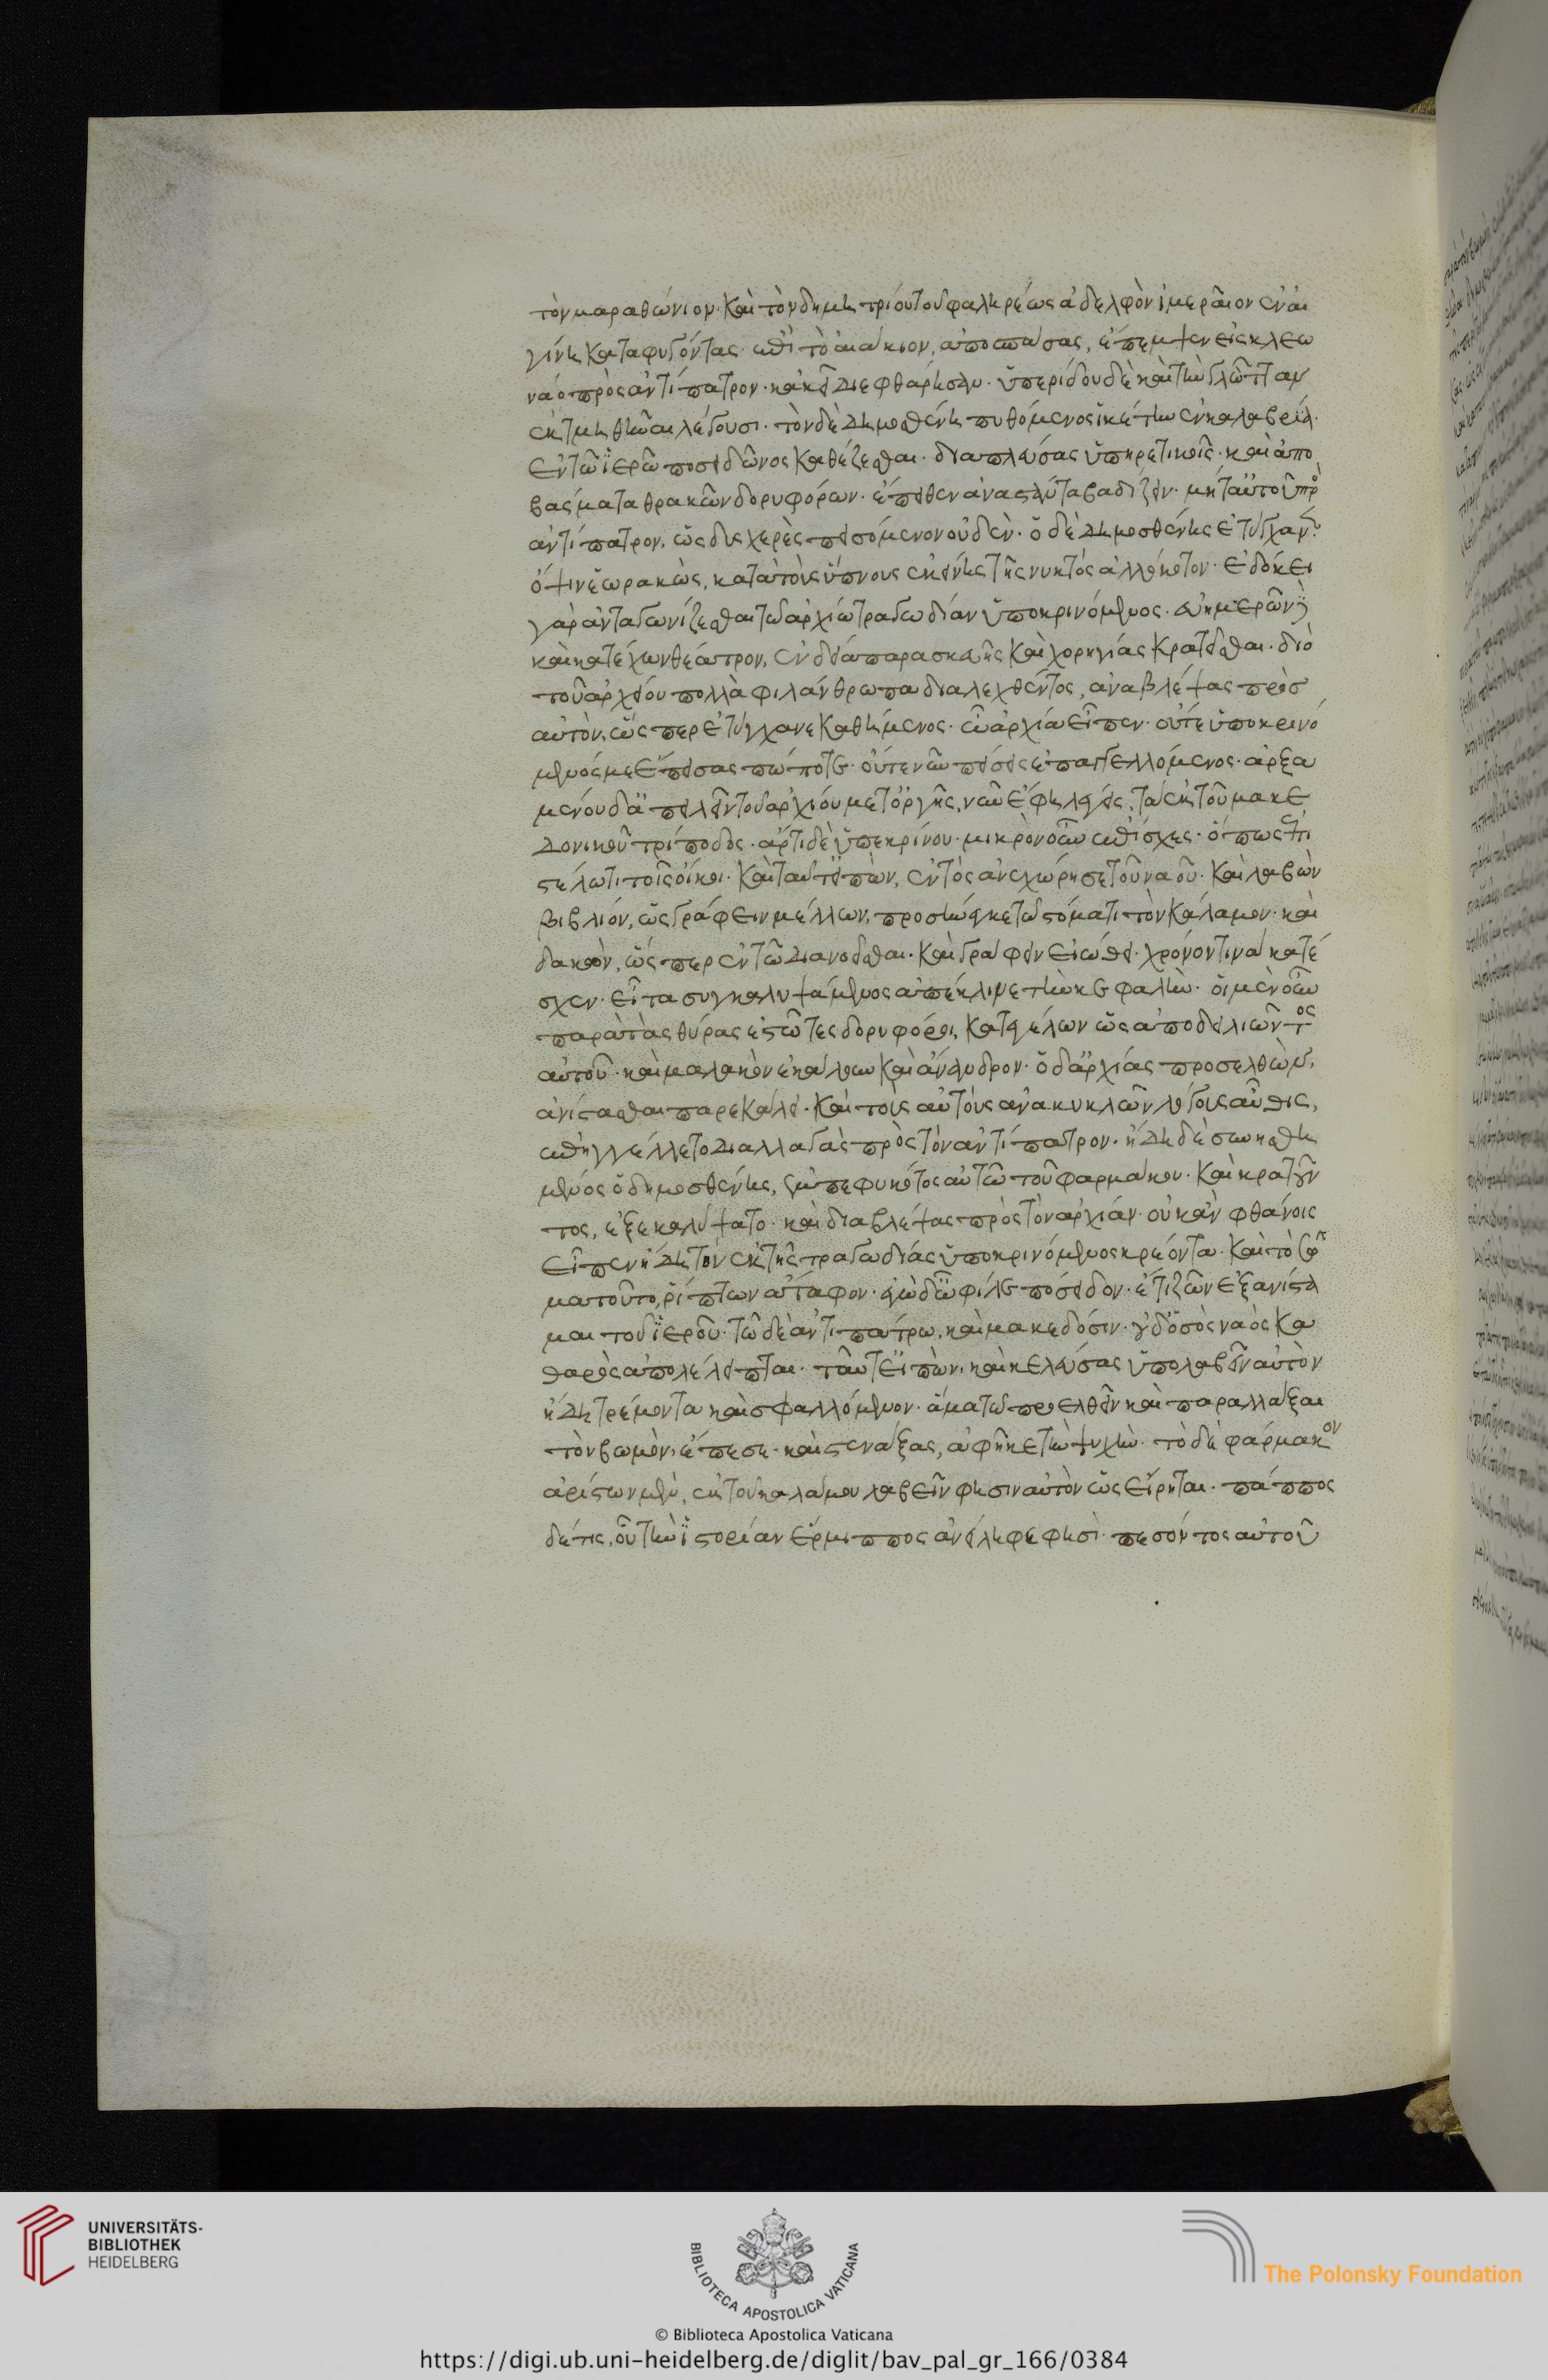 τὸν μαραθώνιον· καὶ τὸν δημητρίου τοῦ φαληρέως ἀδελφὸν ἱμεραῖον ἐν αἰ
γίνη καταφυγόντας ἐπὶ τὸ αἰάκιον, ἀποσπάσας, ἔπεμψεν εἰς κλεω
νὰς πρὸς ἀντίπατρον· κἀκεῖ διεφθάρησαν· ὑπερίδου δὲ καὶ τὴν γλῶτταν
ἐκτμηθῆναι λέγουσι· τὸν δὲ δημοσθένη πυθόμενος ἱκέτην ἐν καλαβρίᾳ
ἐν τῶ ἱερῶ ποσειδῶνος καθέζεσθαι· διαπλεύσας ὑπηρετικοῖς· καὶ ἀπο
βὰς μετὰ θρακῶν δορυφόρων· ἔπειθεν ἀναστάντα βαδίζειν· μετ' αὐτοῦ πρὸ
ἀντίπατρον, ὡς δυσχερὲς πεισόμενον οὐδέν· ὁ δὲ δημοσθένης ἐτύγχανεν
ὄψιν ἑωρακὼς, κατὰ τοὺς ὕπνους ἐκείνης τῆς νυκτός ἀλλόκοτον· ἐδόκει
γὰρ ἀνταγωνίζεσθαι τῶ ἀρχία τραγωδίαν ὑποκρινόμενος· εὐημερῶν δὲ
καὶ κατέχων θέατρον, ἐνδεία παρασκευῆς καὶ χορηγίας κρατεῖσθαι· διὸ
τοῦ ἀρχίου πολλὰ φιλάνθρωπα διαλεχθέντος, ἀναβλέψας πρὸς
αὐτὸν, ὥσπερ ἐτύγχανε καθήμενος· ὦ ἀρχία εἶπεν· οὔτε ὑποκρινό
μενός με ἔπεισας πώποτε· οὔτε νῦν πείσεις ἐπαγγελλόμενος· ἀρξα
μένου δ' ἀπειλεῖν τοῦ ἀρχίου μετ' ὀργῆς, νῦν ἔφη λέγεις, τὰ ἐκ τοῦ μακε
δονικοῦ τρίποδος· ἄρτι δὲ ὑπεκρίνου· μικρὸν οὖν ἐπίσχες· ὅπως ἐπι
στείλω τι τοῖς οἴκοι· καὶ ταῦτ' εἰπὼν, ἐντὸς ἀνεχώρησε τοῦ ναοῦ· καὶ λαβὼν
βιβλίον, ὡς γράφειν μέλλων, προσήνεγκε τῶ στόματι τὸν κάλαμον· καὶ
δακὼν, ὥσπερ ἐν τῶ διανοεῖσθαι· καὶ γράφειν εἰώθει· χρόνον τινὰ κατέ
σχεν· εἶτα συγκαλυψάμενος ἀπέκλινε τὴν κεφαλήν· οἱ μὲν οὖν
παρὰ τὰς θύρας ἑστῶτες δορυφόροι, κατεγέλων ὡς ἀποδειλιῶντος
αὐτοῦ· καὶ μαλακὸν ἐκάλουν καὶ ἄνανδρον· ὁ δ' ἀρχίας προσελθὼν,
ἀνίστασθαι παρεκάλει· καὶ τοὺς αὐτοὺς ἀνακυκλῶν λόγους αὖθις,
ἐπηγγέλλετο διαλλαγὰς πρὸς τὸν ἀντίπατρον· ἤδη δὲ συνησθη
μένος ὁ δημοσθένης, ἐμπεφυκότος αὐτῶ τοῦ φαρμάκου· καὶ κρατοῦν
τος, ἐξεκαλύψατο· καὶ διαβλέψας πρὸς τὸν ἀρχίαν· οὐκ ἂν φθάνοις
εἶπεν ἤδη τὸν ἐκ τῆς τραγωδίας ὑποκρινόμενος κρέοντα· καὶ τὸ σῶ
μα τοῦτο, ῥίπτων ἄταφον· ἐγὼ δ' ὦ φίλε πόσειδον· ἔτι ζῶν ἐξανίστα
μαι τοῦ ἱεροῦ· τῶ δὲ ἀντιπάτρω, καὶ μακεδόσιν· οὐδ' ὁ σὸς ναὸς κα
θαρὸς ἀπολέλειπται· ταῦτ' εἰπὼν, καὶ κελεύσας ὑπολαβεῖν αὐτὸν
ἤδη τρέμοντα καὶ σφαλλόμενον· ἅμα τῶ προελθεῖν καὶ παραλλάξαι
τὸν βωμὸν, ἔπεσε· καὶ στενάξας, ἀφῆκε τὴν ψυχήν· τὸ δὲ φάρμακον
ἀρίστων μὲν, ἐκ τοῦ καλάμου λαβεῖν φησιν αὐτὸν ὡς εἴρηται· πάππος
δέ τις, οὗ τὴν ἱστορίαν ἕρμιππος ἀνείληφε φησὶ· πεσόντος αὐτοῦ
UNIVERSITÄTS-
BIBLIOTHEK
HEIDELBERG
BIBLIOTECA APOSTOLICA VATICANA
© Biblioteca Apostolica Vaticana
The Polonsky Foundation
https://digi.ub.uni-heidelberg.de/diglit/bav_pal_gr_166/0384